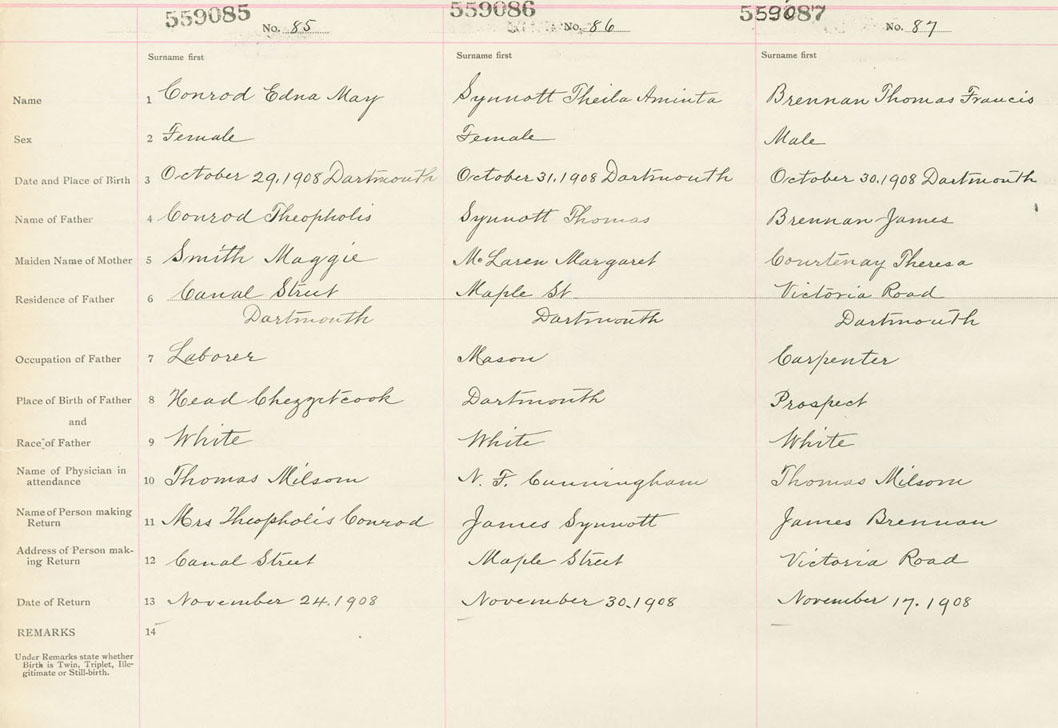 559085 559086 559087
No. 85 No. 86 No. 87
Surname first Surname first Surname first
Name 1 Conrod Edna May Synnott Theila Aminta Brennan Thomas Francis
Sex 2 Female Female Male
Date and Place of Birth 3 October 29, 1908 Dartmouth October 31, 1908 Dartmouth October 30, 1908 Dartmouth
Name of Father 4 Conrod Theopholis Synnott Thomas Brennan James
Maiden Name of Mother 5 Smith Maggie McLaren Margaret Courtenay Theresa
Residence of Father 6 Canal Street Maple St. Victoria Road
Dartmouth Dartmouth Dartmouth
Occupation of Father 7 Laborer Mason Carpenter
Place of Birth of Father 8 Head Chezzetcook Dartmouth Prospect
and
Race of Father 9 White White White
Name of Physician in
attendance 10 Thomas Milsom N. F. Cunningham Thomas Milsom
Name of Person making
Return 11 Mrs Theopholis Conrod James Synnott James Brennan
Address of Person mak-
ing Return 12 Canal Street Maple Street Victoria Road
Date of Return 13 November 24, 1908 November 30, 1908 November 17, 1908
REMARKS 14
Under Remarks state whether
Birth is Twin, Triplet, Ille-
gitimate or Still-birth.